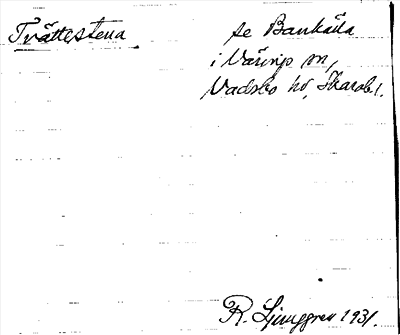 Tvättestena
se Bankälla
i Väring sn,
Vadsbo hd, Skarab.l.
R. Ljunggren 1931.